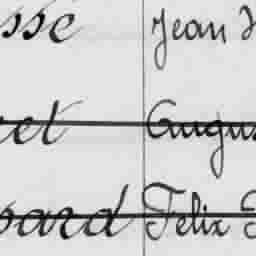 ssé Jean
ret Augus
pard Felix